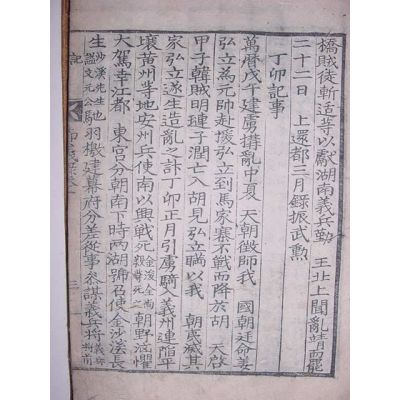 橋賊徒斬适等以獻湖南義兵勤 王北上聞亂靖而罷
二十二日 上還都三月錄振武勳
丁卯記事
萬曆戊午建虜搆亂中夏 天朝徵師我 國朝廷命姜
弘立為元帥赴援弘立到馬家寨不戰而降於胡 天啓
甲子韓賊明璉子潤亡入胡見弘立瞞以我 朝夷滅其
家弘立遂生造亂之計丁卯正月引虜騎入義州連陷平
壤黃州等地安州兵使南以興戰死 金浚金尙毅等死之 朝野洶懼
大駕幸江都 東宮分朝南下時兩湖號召使金沙溪長
生 沙溪先生也謚文元公 馳羽檄建幕府分差從事參謀義兵將
記
三